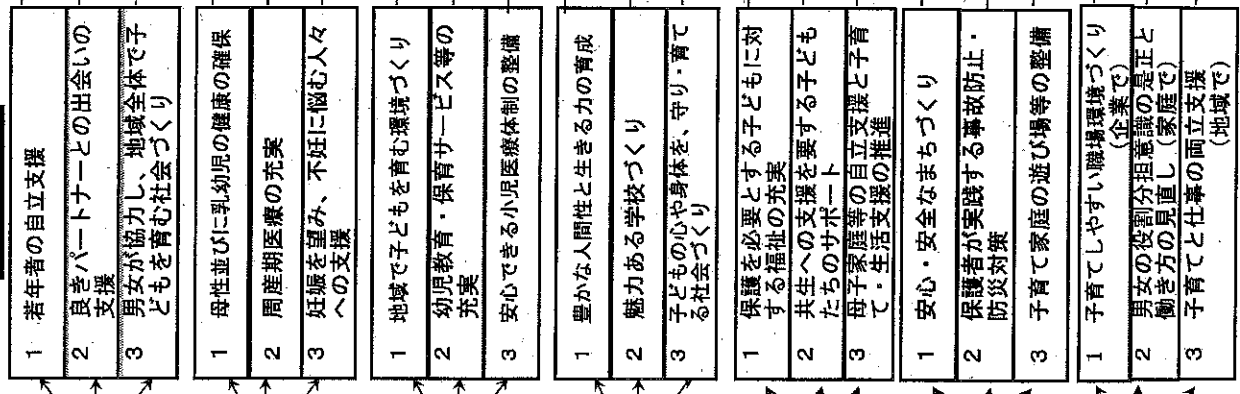 1 若年者の自立支援
2 良きパートナーとの出会いの
支援
3 男女が協力し、地域全体で子
どもを育む社会づくり
1 母性並びに乳幼児の健康の確保
2 周産期医療の充実
3 妊娠を望み、不妊に悩む人々
への支援
1 地域で子どもを育む環境づくり
2 幼児教育・保育サービス等の
充実
3 安心できる小児医療体制の整備
1 豊かな人間性と生きる力の育成
2 魅力ある学校づくり
3 子どもの心や身体を、守り・育て
る社会づくり
1 保護を必要とする子どもに対
する福祉の充実
2 共生への支援を要する子ども
たちのサポート
3 母子家庭等の自立支援と子育
て・生活支援の推進
1 安心・安全なまちづくり
2 保護者が実践する事故防止・
防災対策
3 子育て家庭の遊び場等の整備
1 子育てしやすい職場環境づくり
(企業で)
2 男女の役割分担意識の是正と
働き方の見直し(家庭で)
3 子育てと仕事の両立支援
(地域で)